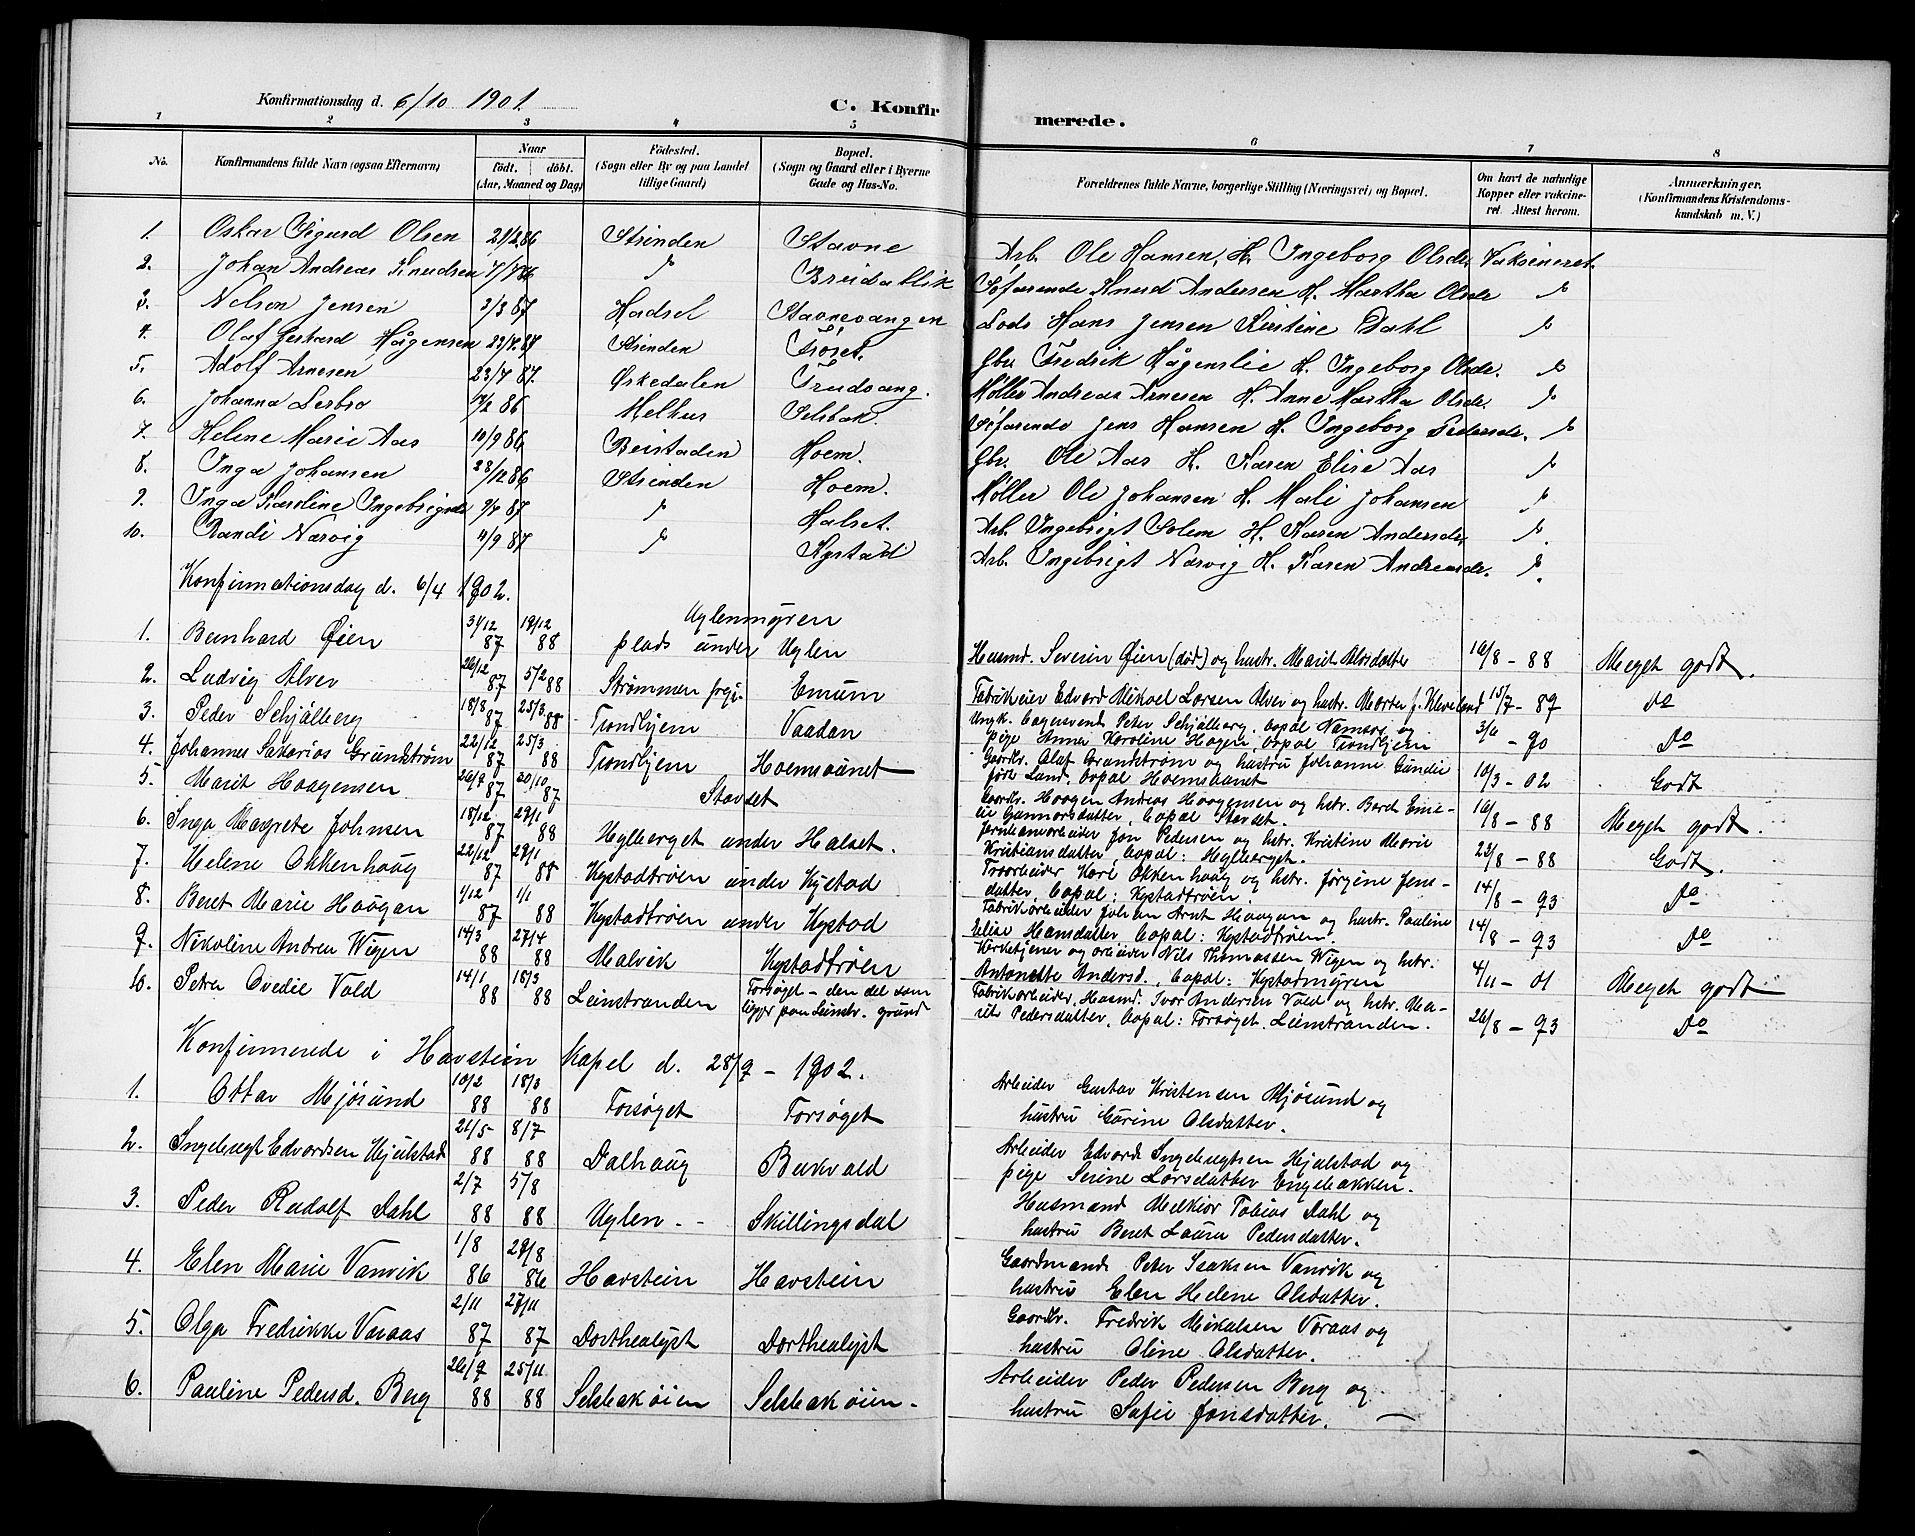 Konfirmationsdag d. 6/10 1901.
C. Konfirmerede.
1 2 3 4 5 6 7 8
No. Konfirmandens fulde Navn (ogsaa Efternavn) Naar født. döbt. (Aar, Maaned og Dag) Födested. (Sogn eller By og paa Landet tillige Gaard) Bopæl. (Sogn og Gaard eller i Byerne Gade og Hus-No. Forældrenes fulde Navne, borgerlige Stilling (Næringsvei) og Bopæl. Om havt de naturlige Kopper eller vakcineret. Attest herom. Anmærkninger. (Konfirmandens Kristendomskundskab m. V.)
1. Oskar Sigurd Olsen 21/2 86 Strinden Stavne Arb. Ole Hansen, H. Ingeborg Olsdr. Vaksineret.
2. Johan Andreas Knudsen 7/7 86 " Breidablik Søfarende Knud Andersen H. Martha Olsdr "
3. Nelson Jensen 3/3 87 Hadsel Stavnevangen Lods Hans Jensen Kirstine Dahl "
4. Olaf Gerhard Hågensen 23/4 87 Strinden Trøset. Gbr. Fredrik Hågenslie H. Ingeborg Olsdr. "
5. Adolf Arnesen 23/7 87. Ørkedalen Trudvang. Møller Andreas Arnesen H. Anne Martha Olsdr. "
6. Johanna Lerbro 86 Melhus Selsbak. Søfarende Jens Hansen H. Ingeborg Pedersdr. "
7. Helene Marie Aas 10/9 86 Beistaden Hoem. Gbr. Ole Aas H. Karen Elise Aas "
8. Inga Johansen 28/12 86 Strinden Hoem. Møller Ole Johansen H. Mali Johansen "
9. Inga Karoline Ingebrigtsdr 9/4 87 " Halset. Arb. Ingebrigt Solem H. Karen Andersdr. "
10. Randi Narvig 4/9 87 " Kystad Arb. Ingebrigt Narvig H. Karen Andreasdr. "
Konfirmationsdag d. 6/4 1902.
1. Bernhard Øien 31/12 87 19/12 88 Uglenmyren plads under Uglen Husmd. Severin Øien (død) og hustr. Marit Olsdatter 16/8 - 88 Meget godt.
2. Ludvig Alver 26/12 87 5/2 88 Strømmen Emum Fabrikeier Edvard Mikael Larsen Alver og hustr. Marta f. Kleveland 15/7 - 89 Do
3. Peder Schjølberg 18/8 87 25/3 88 Trondhjem Vaadan Ungk. Peter Schjølberg, bopal Namsos og pige Anna Karoline Hagen, bopal Trondhjem 3/6 - 90 Do
4. Johannes Sakarias Grundstrøm 22/12 87 25/3 88 Trondhjem Hoemsaunet Gaardbr. Olaf Grundstrøm og hustru Johanne Gundie født Land. bopal Hoemsaunet 10/3 - 02 Godt
5. Marit Haagensen 26/9 87 30/10 87 Stavset Gaardbr. Haagen Andreas Haagensen og hstr. Beret Emelie Gunnarsdatter, bopal Stavset. 16/8 - 88 Meget godt.
6. Inga Margrete Johnsen 18/12 87 29/1 88 Hylberget under Halset. Jernbanearbeider Jon Pedersen og hstr. Kristine Marie Kristiansdatter, bopal: Hylberget. 23/8 - 88 Godt.
7. Helene Okkenhaug 22/12 87 29/1 88 Kystadtrøen under Kystad Træarbeider Karl Okkenhaug og hstr. Jørgine Jensdatter, bopal: Kystadtrøen. 14/8 - 93 Do
8. Beret Marie Haagan 1/12 87 1/1 88 Kystadtrøen under Kystad Fabrikarbeider Johan Arnt Haagan og hustr. Pauline Elise Hansdatter, bopal: Kystadtrøen. 14/8 - 93 Do
9. Nikoline Andrea Wigen 14/3 88 27/4 88 Malvik Kystadtrøen Kirketjener og arbeider Nils Thomassen Wigen og hstr. Antonette Andersd., bopal: Kystadmyren 4/11 - 01 Meget godt
10. Petra Ovedie Vold 14/1 88 18/3 88 Leinstranden Forsøget - den del som ligger paa Leinstr. grund Fabrikarbeider, Husmd. Ivar Andersen Vold og hstr. Marit Pedersdatter, bopal: Forsøget, Leinstranden. 26/8 - 93 Do
Konfirmerede i Havstein kapel d. 28/9 - 1902.
1. Ottar Mjøsund 10/2 88 18/3 88 Forsøget Forsøget Arbeider Gustav Kristensen Mjøsund og
hustru Carine Olsdatter.
2. Ingebrigt Edvardsen Hjulstad 21/5 88 8/7 88 Dalhaug Bukvald Arbeider Edvard Ingebrigtsen Hjulstad og
pige Serine Larsdatter Engelsakken.
3. Peder Rudolf Dahl 2/7 88 5/8 88 Uglen - - Skillingsdal Husmand Melkior Tobias Dahl og
hustru Beret Laura Pedersdatter.
4. Elen Marie Vanvik 1/8 86 29/8 86 Havstein Havstein Gaardmand Peter Isaksen Vanvik og
hustru Elen Helene Olsdatter.
5. Olga Fredrikke Voraas 2/11 87 27/11 87 Dorthealyst Dorthealyst Gaardbr. Fredrik Mikalsen Voraas og
hustru Oline Olsdatter.
6. Pauline Pedersd. Berg 26/9 88 25/11 88 Selsbakøien Selsbakøien. Arbeider Peder Pedersen Berg og
hustru Sofie Jonsdatter.